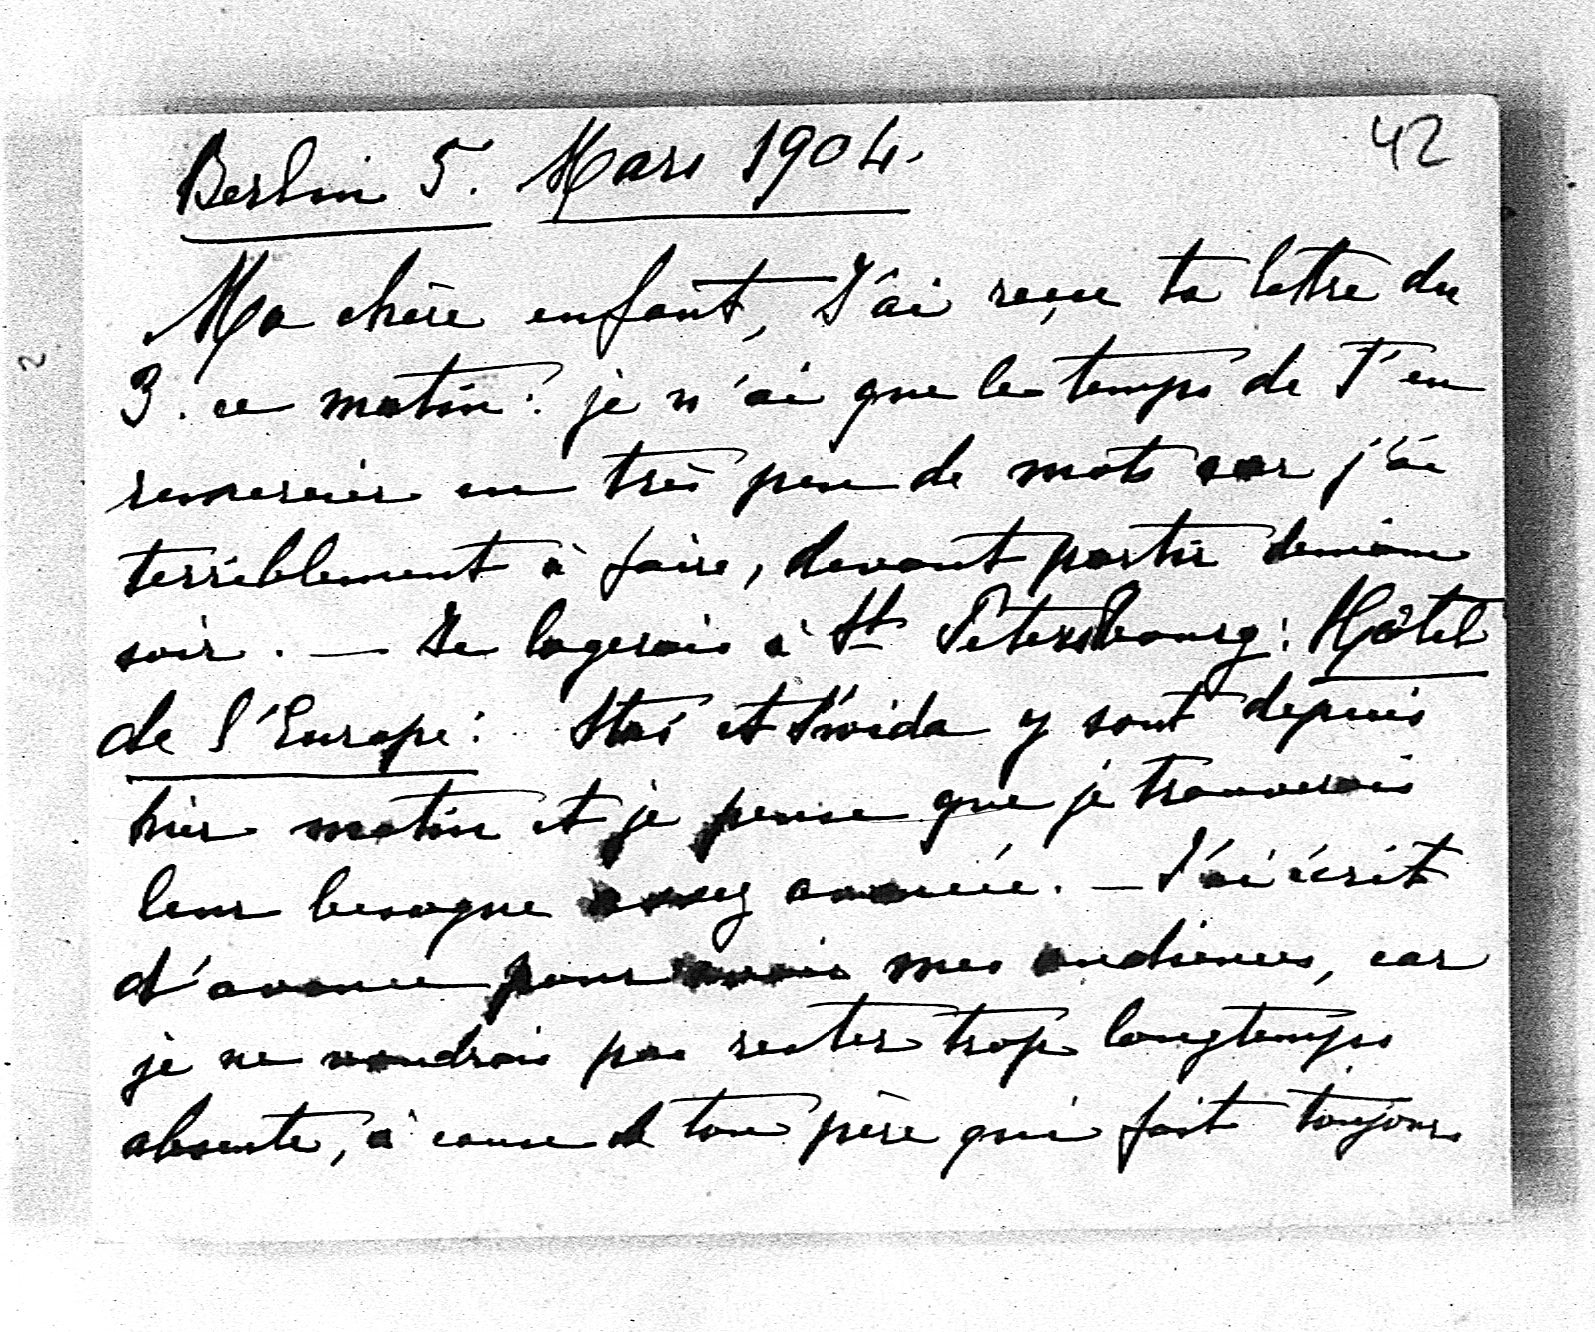 42
Berlin 5. Mars 1904.
Ma chère enfant, J'ai reçu ta lettre du
3. ce matin: je n'ai que le temps de T'en
remercier en très peu de mots car j'ai
terriblement à faire, devant partir demain
soir. — Je logerais à St Petersbourg: Hôtel
de l'Europe: Stas et Swida y sont depuis
hier matin et je pense que je trouverais
leur besogne assez avancée. — J'ai écrit
d'avance pour avoir mes audiences, car
je ne voudrais pas rester trop longtemps
absente, à cause de ton père qui fait toujours